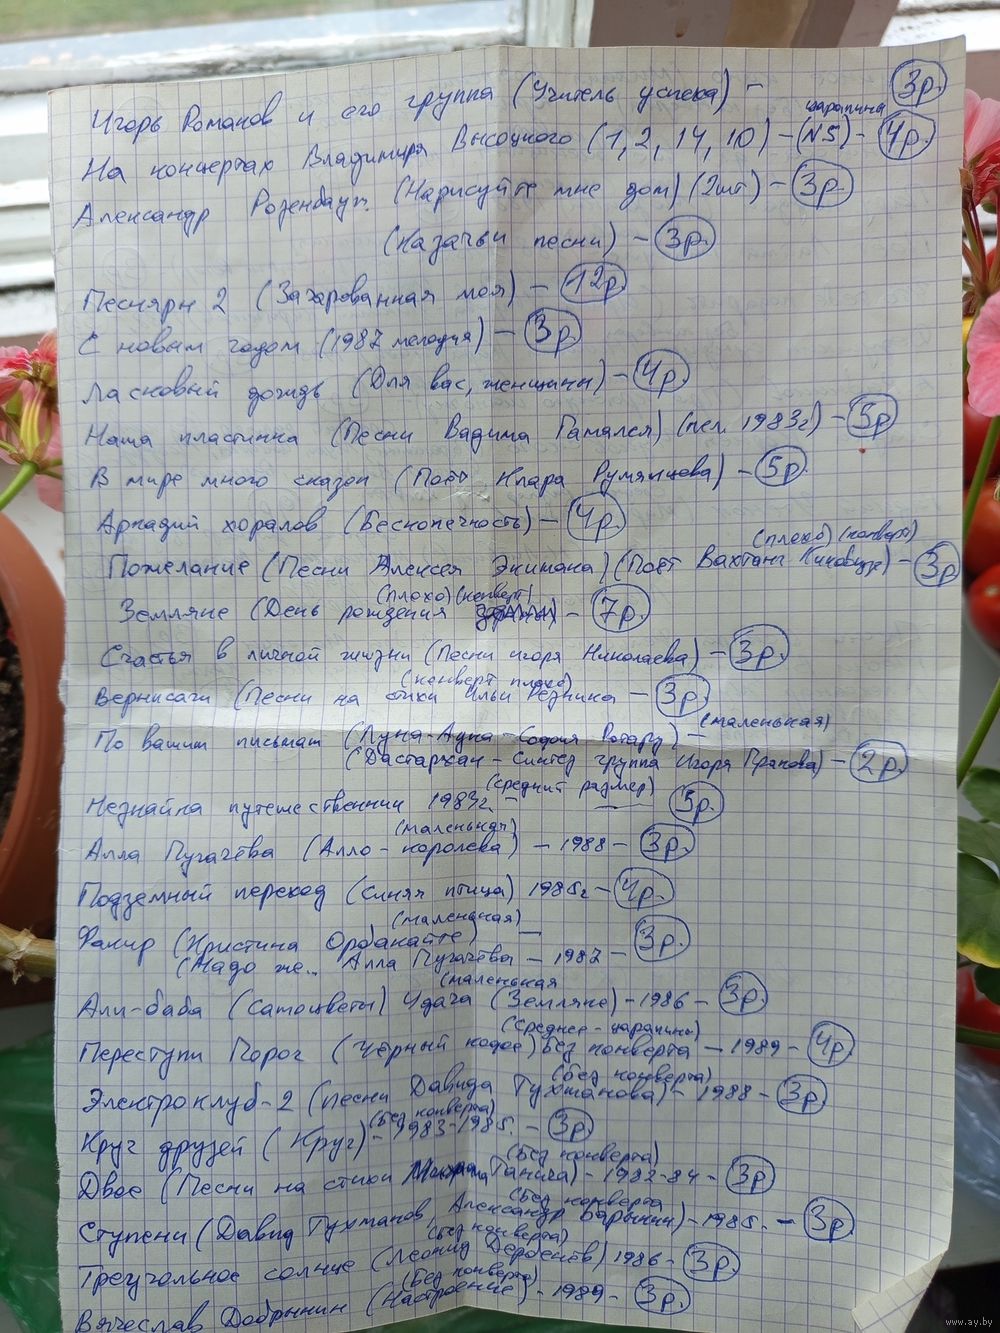 Игорь Романов и его группа (Учитель успеха) - 3р.
царапина
На концертах Владимира Высоцкого (1, 2, 14, 10) - (N5) - 4р.
Александр Розенбаум (Нарисуйте мне дом) (2шт) - 3р.
(Казачьи песни) - 3р.
Песняры 2 (Зачарованная моя) - 12р
С новым годом (1987 мелодия) - 3р.
Ласковый дождь (Для вас, женщины) - 4р.
Наша пластинка (Песни Вадима Гамалея) 1983г) - 5р
В мире много сказок (Поёт Клара Румянцева) - 5р.
Аркадий хоралов (Бесконечность) - 4р.
(плохо) (конверт)
Пожелание (Песни Алексея Экимяна) (Поёт Вахтанг Кикабидзе) - 3р
(плохо) (конверт)
Земляне (День рождения - 7р.
Счастья в личной жизни (Песни игоря Николаева) - 3р.
(конверт плохо)
Вернисаж (Песни на стихи Ильи Резника - 3р.
(маленькая)
По вашим письмам (Луна-Луна - София Ротару) -
(Дастархан - Синтез группа Игоря) - 2р.
(средний размер)
Незнайка путешественник 1983г. - 5р.
(маленькая)
Алла Пугачёва (Алло - королева) - 1988 - 3р.
Подземный переход (Синяя птица) 1985г - 4р.
(маленькая)
Факир (Кристина Орбакайте) -
(Надо же.. Алла Пугачёва - 1987 - 3р.
(маленькая
Али-баба (Самоцветы) Удача (Земляне) - 1986 - 3р.
(среднее - царапины)
Переступи Порог (Чёрный кофе) Без конверта - 1989 - 4р
(без конверта)
Электроклуб-2 (песни Давида Тухманова) - 1988 - 3р.
(без конверта)
Круг друзей (Круг) - 1983-1985. - 3р)
(без конверта)
Двое (Песни на стихи Михаила Танича) - 1982-84 - 3р.
(без конверта
Ступени (Давид Тухманов, Александр Барыкин) - 1985г. - 3р.
(без конверта)
Треугольное солнце (Леонид Дербенёв) 1986 - 3р.
(без конверта)
Вячеслав Добрынин (Настроение) - 1989 - 3р.
www.ay.by